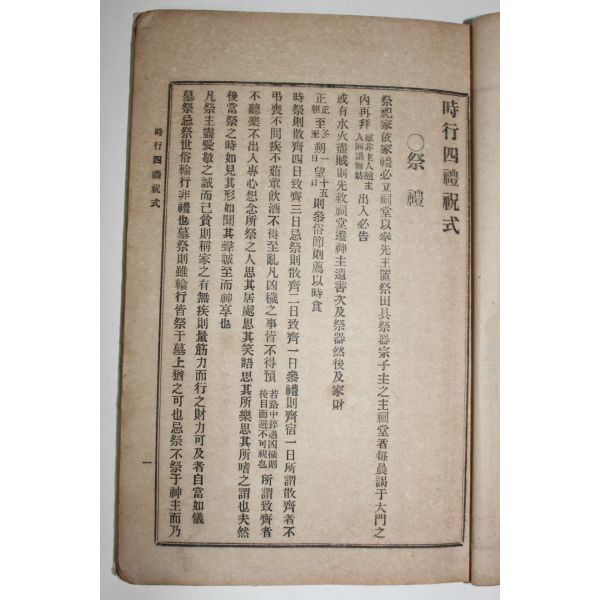 時行四禮祝式
○祭禮
祭祀家依家禮必立祠堂以奉先王置祭田具祭器宗子主之主祠堂者每晨謁于大門之
內再拜雖非主人隨主人同謁無妨出入必告
或有水火盜賊則先救祠堂遷神主遺書次及祭器然後及家財
正正朝至冬至朔一日望十五日則參俗節則薦以時食
時祭則散齊四日致齊三日忌祭則散齊二日致齊一日參禮則齊宿一日所謂散齊者不
弔喪不問疾不茹葷飮酒不得至亂凡凶穢之事皆不得預若路中猝遇凶穢則掩目而避不可視也所謂致齊者
不聽樂不出入專心想念所祭之人思其居處思其笑語思其所樂思其所嗜之謂也夫然
後當祭之時如見其形如聞其聲誠至而神享也
凡祭主盡愛敬之誠而已貧則稱家之有無疾則量筋力而行之財力可及者自當如儀
墓祭忌祭世俗輪行非禮也墓祭則雖輪行皆祭于墓上猶之可也忌祭不祭于神主而乃
時行四禮祝式
一